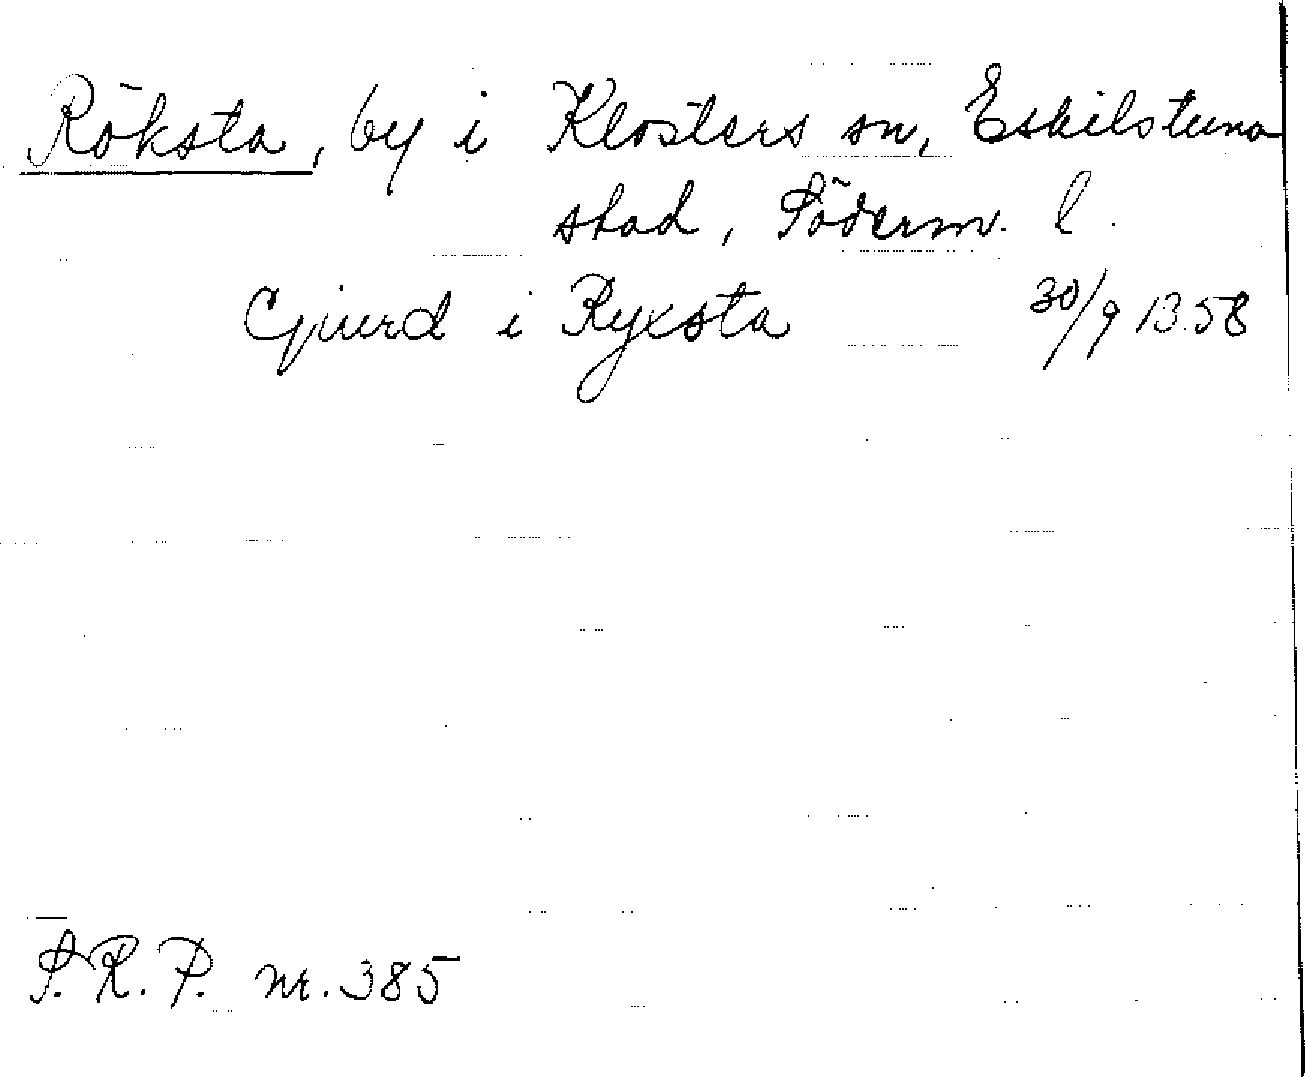 Röksta, by i Klosters sn, Eskilstuna
stad, Söderm. l.
Gjurd i Ryxsta 30/9 1358
S.R.P. nr. 385